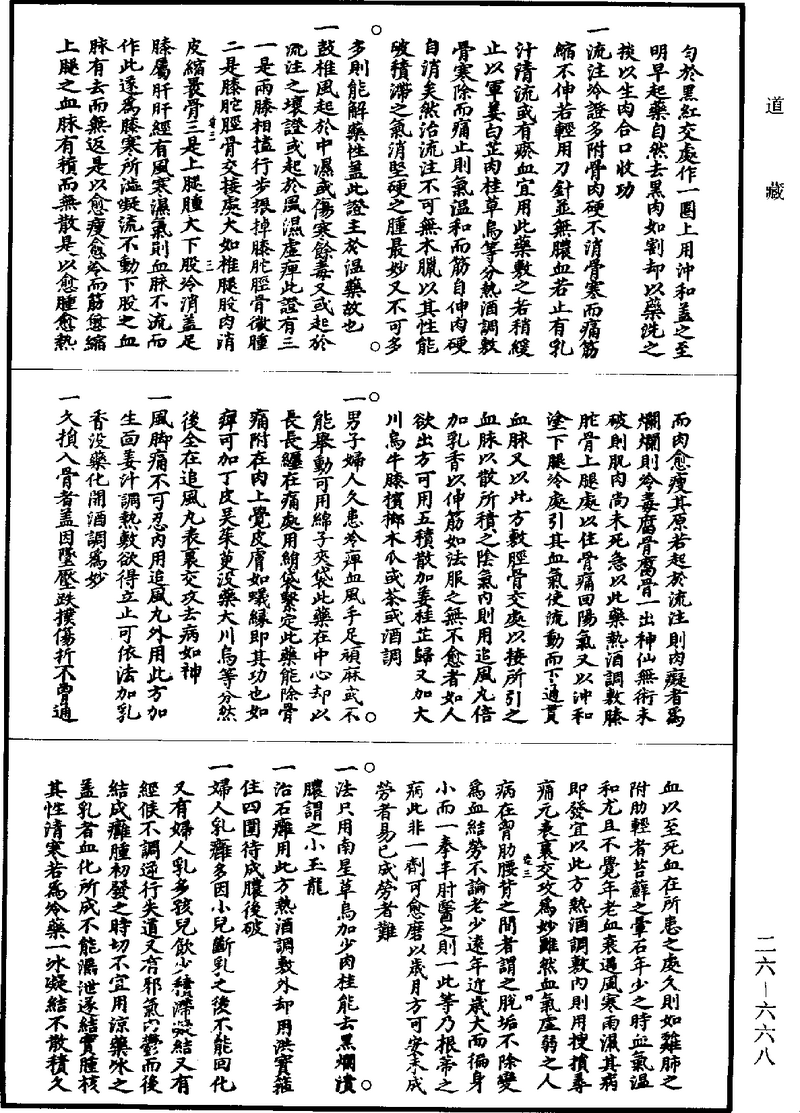 道藏
勻於黑紅交處作一圈上用沖和蓋之至
明早起藥自然去黑肉如割却以藥洗之
揬以生肉合口收功
一流注冷證多附骨肉硬不消骨寒而痛筋
縮不伸若輕用刀針並無膿血若止有乳
汁清流或有瘀血宜用此藥敷之若稍緩
止以軍姜白芷肉桂草烏等分熱酒調敷
骨寒除而痛止則氣溫和而筋自伸肉硬
自消矣然治流注不可無木臘以其性能
破積滯之氣消堅硬之腫最妙又不可多
多則能解藥性蓋此證主於溫藥故也
一鼓椎風起於中濕或傷寒餘毒又或起於
流注之壞證或起於風濕虛痺此證有三
一是兩膝相搕行步振掉膝腔脛骨微腫
二是膝腔脛骨交接處大如椎腿股肉消
皮縮最骨三是上腿腫大下股冷消蓋足
膝屬肝肝經有風寒濕氣則血脉不流而
作此遂為膝寒所溢凝流不動下股之血
脉有去而無返是以愈瘦愈冷而筋愈縮
上腿之血脉有積而無散是以愈腫愈熱
而肉愈瘦其原若起於流注則肉凝者為
爛爛則冷毒腐骨腐骨一出神仙無術未
破則肌肉尚未死急以此藥熱酒調敷膝
腔骨上腿處以住骨痛回陽氣又以沖和
塗下腿冷處引其血氣使流動而下通貫
血脉又以此方敷脛骨交處以接所引之
血脉以散所積之陰氣內則用追風丸倍
加乳香以伸筋如法服之無不愈者如人
欲出方可用五積散加姜桂芷歸又加大
川烏牛膝檳榔木瓜或茶或酒調
一男子婦人久患冷痺血風手足頑麻或不
能舉動可用綿子夾袋此藥在中心却以
長長纏在痛處用綿袋繫定此藥能除骨
痛附在肉上覺皮膚如蟻緣即其功也如
痺可加丁皮吳茱萸沒藥大川烏等分然
後全在追風丸表裏交攻去病如神
一風脚痛不可忍內用追風丸外用此方加
生面姜汁調熱敷欲得立止可依法加乳
香沒藥化開酒調為妙
一久損入骨者蓋因墜壓跌撲傷折不曾通
血以至死血在所患之處久則如雞肺之
附肋輕者苔蘚之暈石年少之時血氣溫
和尤且不覺年老血衰遇風寒雨濕其病
即發宜以此方熱酒調敷內則用搜損尋
痛元表裏交攻為妙雖然血氣虛弱之人
病在胷肋腰背之間者謂之脫垢不除變
為血結勞不論老少遠年近歲大而徧身
小而一拳半肘醫之則一此等乃根蒂之
病此非一劑可愈磨以歲月方可安未成
勞者易已成勞者難
一法只用南星草烏加少肉桂能去黑爛潰
膿謂之小玉龍
一治石癰用此方熱酒調敷外却用洪寶箍
住四圍待成膿後破
一婦人乳癰多因小兒斷乳之後不能回化
又有婦人乳多孩兒飲少積滯凝結又有
經候不調逆行失道又有邪氣內鬱而後
結成癰腫初發之時切不宜用涼藥冰之
蓋乳者血化所成不能漏泄遂結實腫核
其性清寒若為冷藥一冰凝結不散積久
卷二 三
卷三 四
二六—六六八